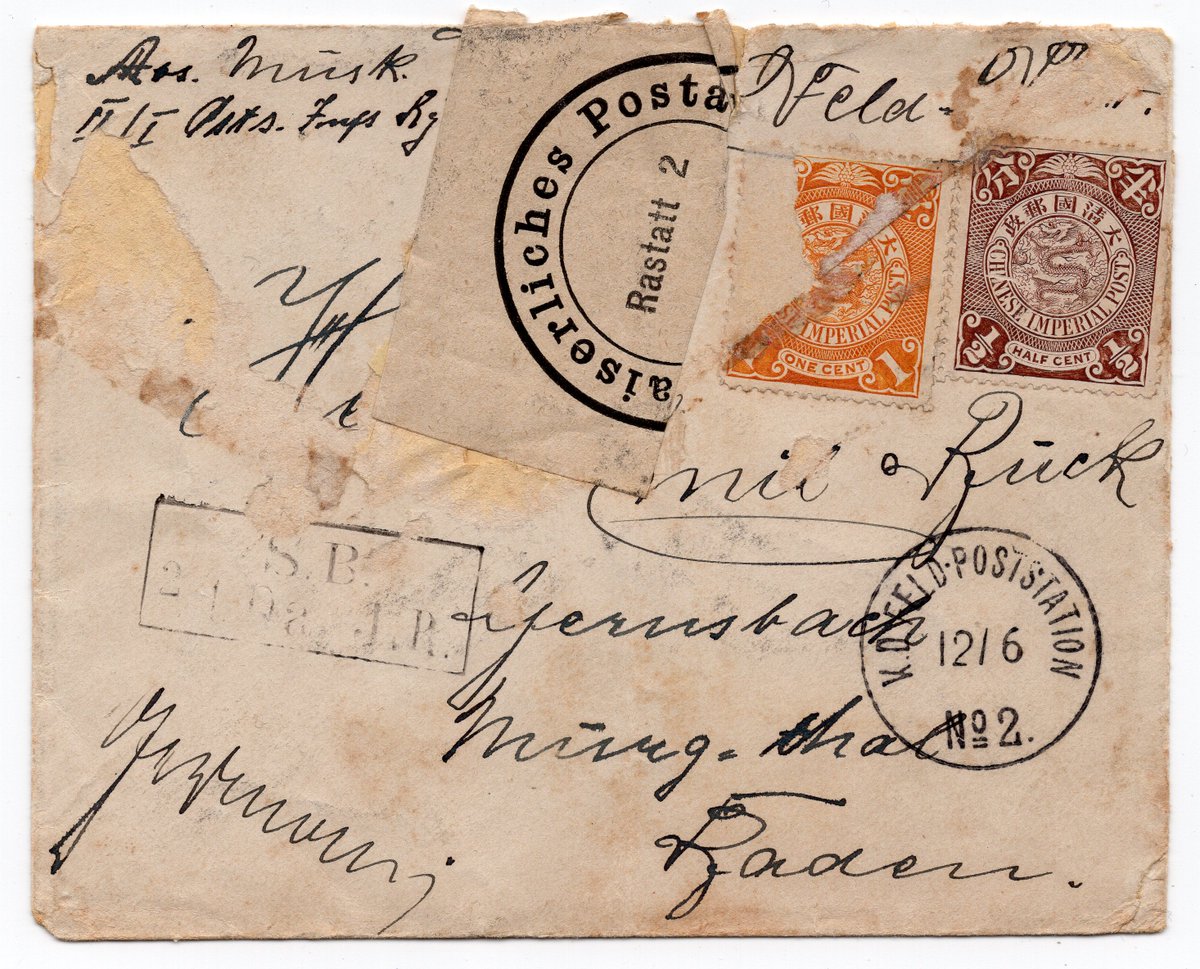 Musk.
II/I Osts. Inf. Rg
aiserliches Posta
Rastatt 2
Feld-
分 半
政郵國清大
CHINESE IMPERIAL POST
½ HALF CENT ½
郵國清大
IMPERIAL POST
ONE CENT 1
Emil Rück
S.B.
J.R.
Gernsbach
K.D. FELD-POSTSTATION
12/6
No 2.
Murg-thal
Baden.
Germany